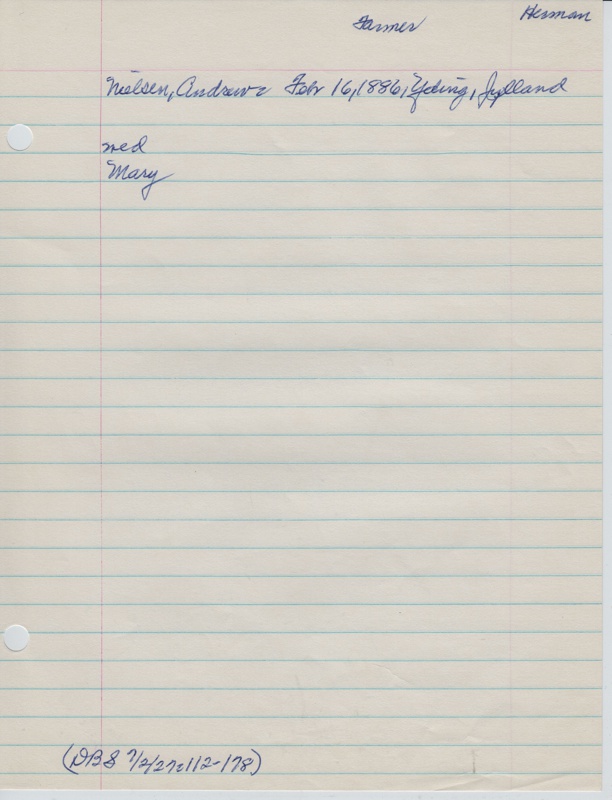 Herman
Farmer
Nielsen, Andrew Feb 16, 1886, Yding, Jylland
med
Mary
(DBS 7/2/27:112-178)